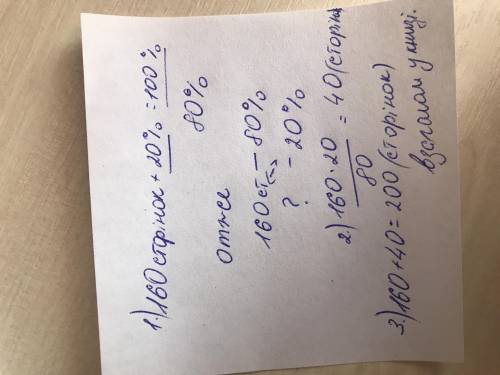 1.) 160 сторінок + 20% = 100%
80%
отже
160 ст — 80%
? — 20%
2) 160 · 20 / 80 = 40 (сторінок
3.) 160 + 40 = 200 (сторінок)
у книзі.